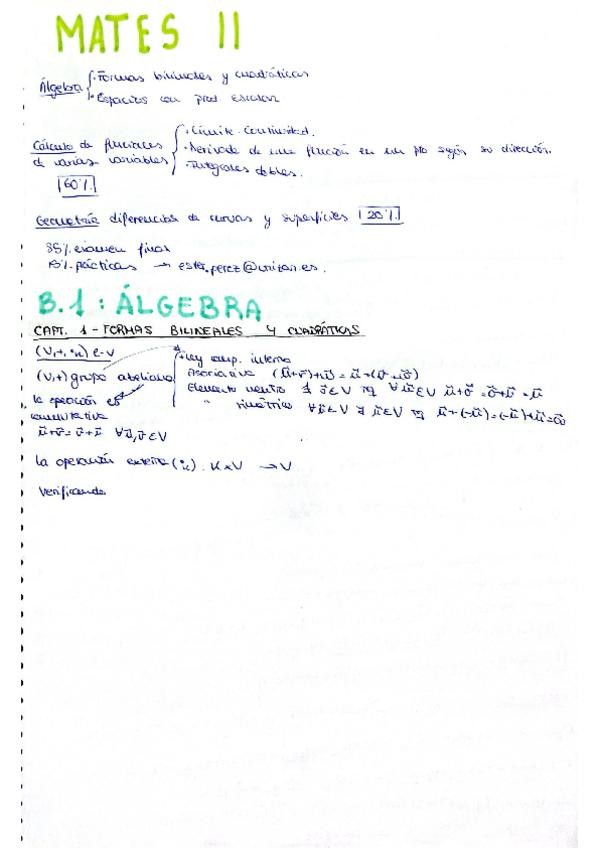 MATES II
Álgebra { · Formas bilineales y cuadráticas
· Espacios con prod escalar
Cálculo de funciones de varias variables { · Límite. Continuidad.
· Derivada de una función en un pto según su dirección.
· Integrales dobles.
60%
Geometría diferencial de curvas y superficies 20%
85% examen final
15% prácticas →
B.1: ÁLGEBRA
CAPT. 1 - FORMAS BILINEALES Y CUADRÁTICAS
(V,+,·k) e-v
(V,+) grupo abeliano { ley comp. interna
Asociativa (u⃗+v⃗)+w⃗ = u⃗+(v⃗+w⃗)
Elemento neutro ∃ o⃗∈V tq ∀u⃗∈V u⃗+o⃗ = o⃗+u⃗ = u⃗
" simétrico ∀u⃗∈V ∃ -u⃗∈V tq u⃗+(-u⃗)=(-u⃗)+u⃗=o⃗
la operación es
conmutativa
u⃗+v⃗=v⃗+u⃗ ∀u⃗,v⃗∈V
La operación externa (·k) : K×V → V
verificando